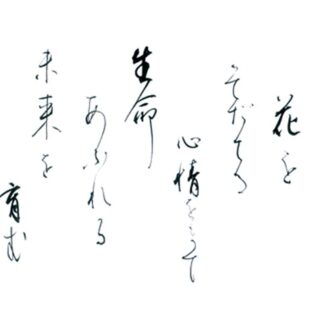 花を
そだてる
心情をもつて
生命
あふれる
未来を
育む